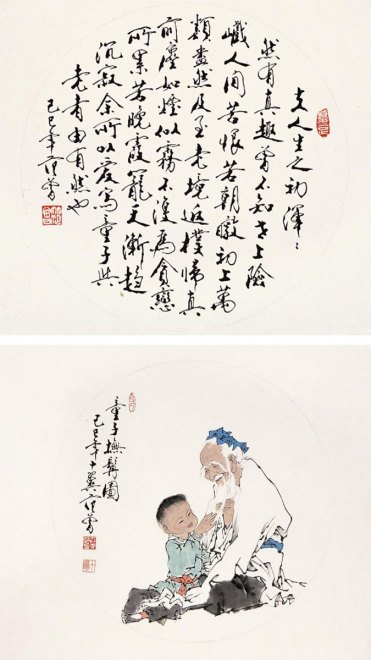 夫人生之初渾〻
然有真趣曾不知世上險
巇人間苦恨若朝暾初上萬
類盎然及至老境返樸歸真
前塵如煙似霧不復為貪戀
所累若晚霞籠天漸趨
沉寂余所以爱寫童子與
老者由有然也
己巳年范曾
童子撫髯圖
己巳年十翼范曾